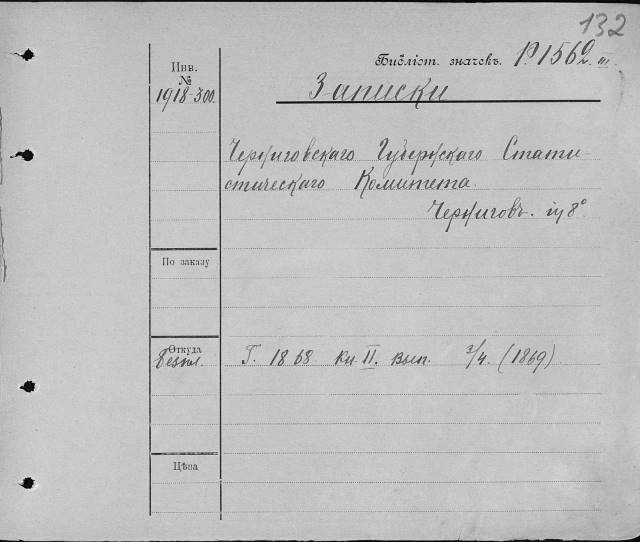 132
Инв.
№
1918-300.
Библіот. значекъ. Р.1562.III.
Записки
Черниговскаго Губернскаго Стати-
стическаго Комитета.
Черниговъ. in 8°
По заказу
Откуда
безпл.
Г. 1868 кн II. вып. 3/4. (1869)
Цѣна